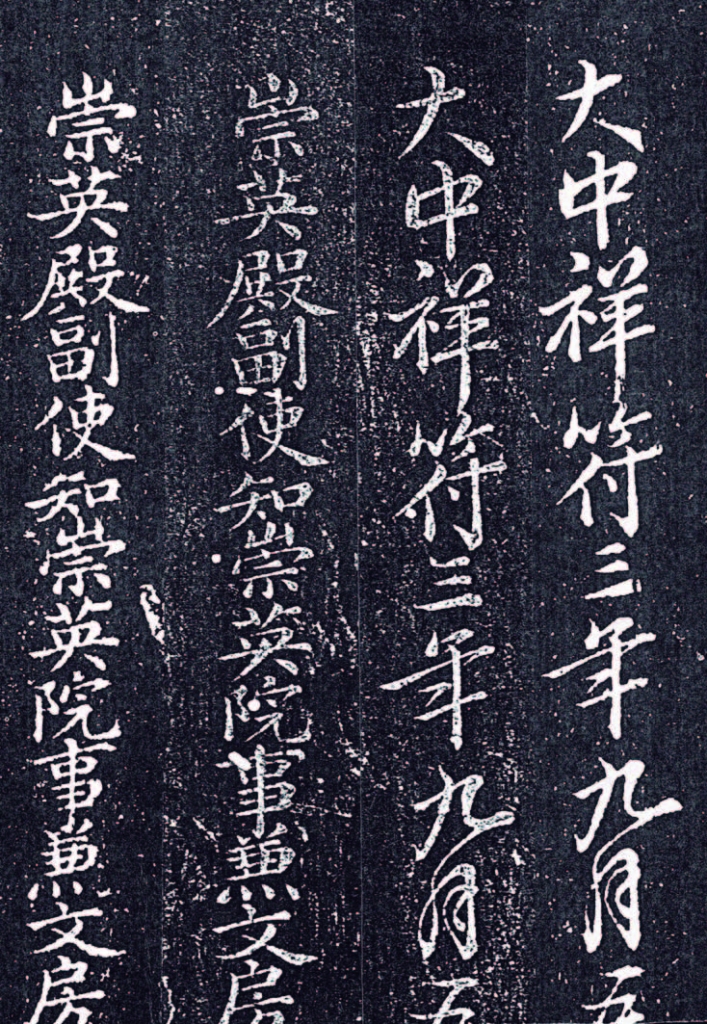 大中祥符三年九月五
大中祥符三年九月五
崇英殿副使知崇英院事兼文房
崇英殿副使知崇英院事兼文房